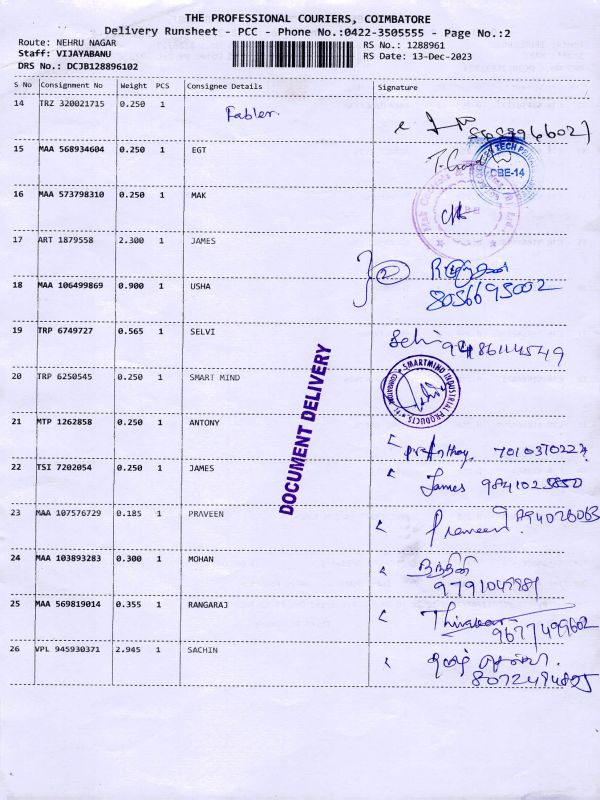 THE PROFESSIONAL COURIERS, COIMBATORE
Delivery Runsheet - PCC - Phone No.:0422-3505555 - Page No.:2
Route: NEHRU NAGAR
RS No.: 1288961
Staff: VIJAYABANU
RS Date: 13-Dec-2023
DRS No.: DCJB128896102
S No Consignment No Weight PCS Consignee Details Signature
14 TRZ 320021715 0.250 1 Fabler
15 MAA 568934604 0.250 1 EGT
CBE-14
16 MAA 573798310 0.250 1 MAK
17 ART 1879558 2.300 1 JAMES
2
18 MAA 106499869 0.900 1 USHA
8056695002
19 TRP 6749727 0.565 1 SELVI Selvi
20 TRP 6250545 0.250 1 SMART MIND
SMARTMIND INDUSTRIAL PRODUCTS
DOCUMENT DELIVERY
21 MTP 1262858 0.250 1 ANTONY
22 TSI 7202054 0.250 1 JAMES
James
23 MAA 107576729 0.185 1 PRAVEEN
Praveen
24 MAA 103893283 0.300 1 MOHAN நந்தினி
25 MAA 569819014 0.355 1 RANGARAJ
9677499602
26 VPL 945930371 2.945 1 SACHIN